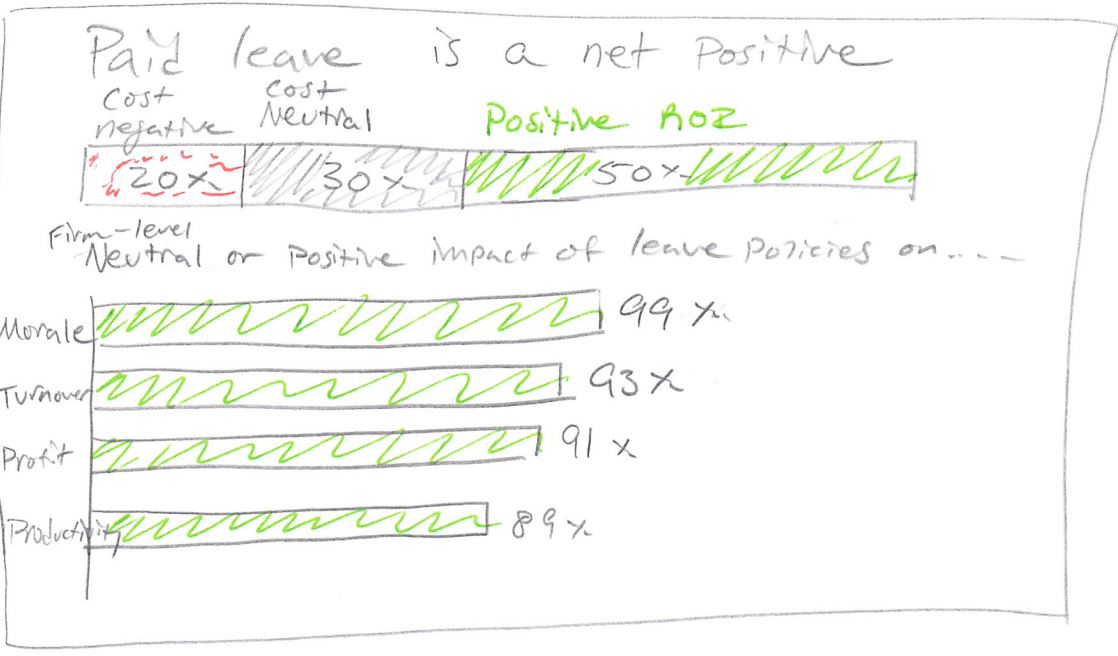 Paid leave is a net positive
Cost negative
Cost Neutral
Positive ROI
20%
30%
50%
Firm-level
Neutral or positive impact of leave policies on....
Morale 99%
Turnover 93%
Profit 91%
Productivity 89%